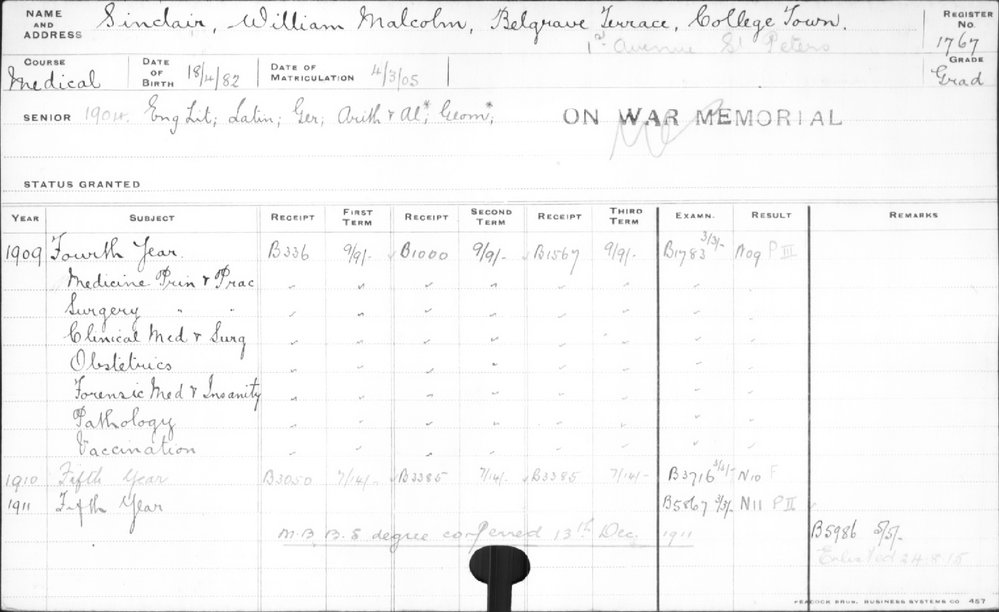 NAME AND ADDRESS Sinclair, William Malcolm, Belgrave Terrace, College Town. REGISTER No. 1767
1st Avenue St Peters
COURSE Medical DATE OF BIRTH 18/4/82 DATE OF MATRICULATION 4/3/05 GRADE Grad
SENIOR 1904. Eng Lit; Latin; Ger; Arith & Al*; Geom*; ON WAR MEMORIAL
STATUS GRANTED
YEAR SUBJECT RECEIPT FIRST TERM RECEIPT SECOND TERM RECEIPT THIRD TERM EXAMN. RESULT REMARKS
1909 Fourth Year. B336 9/9/- B1000 9/9/- B1567 9/9/- B1783 3/3/- N09 P III
Medicine Prin & Prac " " " " " " " "
Surgery " " " " " " " " " "
Clinical Med & Surg " " " " " " " "
Obstetrics " " " " " " " "
Forensic Med & Insanity " " " " " " " "
Pathology " " " " " " " "
Vaccination " " " " " " " "
1910 Fifth Year B3050 7/14/- B3385 7/14/- B3385 7/14/- B3716 3/3/- N10 F
1911 Fifth Year B5867 3/3/- N11 P II
M.B. B.S degree conferred 13th Dec. 1911 B5986 5/5/-
Enlisted 24.8.15
PEACOCK BROS. BUSINESS SYSTEMS CO 457